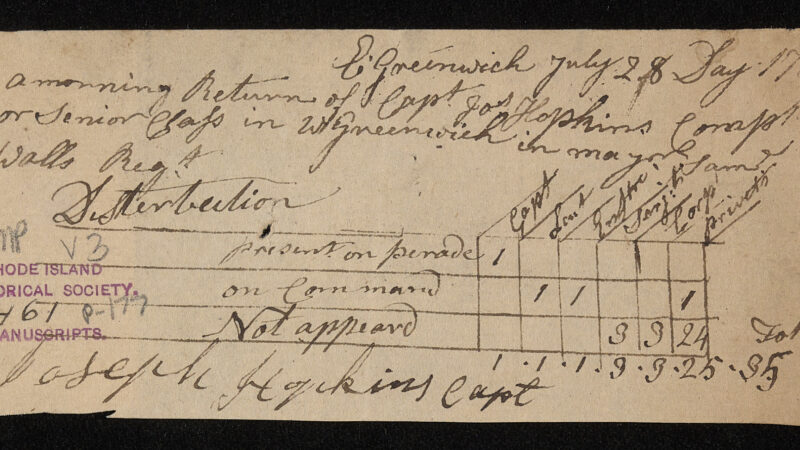 E Greenwich July 28 Day 17
a morning Return of Capt Jos Hopkins Compt
or Senior Class in Wt Greenwich in mayor Saml
Walls Regt
Disterbution
Capt Leut Ensine Sergts Corpl privets
present on perade 1
on Command 1 1 1
Not appeard 3 3 24 Tot
1 . 1 . 1 . 3 . 3 . 25 . 35
Joseph Hopkins Capt
V3
HODE ISLAND
ORICAL SOCIETY.
461 p-177
ANUSCRIPTS.